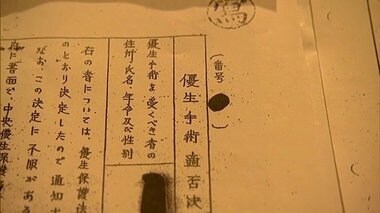 寫
(番号)
優生手術適否決
優生手術を受くべき者の
住所、氏名、年令及性別
右の者については、優生保護法
のとおり決定したので通知す
なお、この決定に不服がある
に書面で、中央優生保護